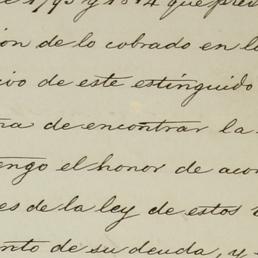 1795 y 1814 que pres
ión de lo cobrado en l
ivo de este estinguido
na de encontrar la
engo el honor de acom
es de la ley de estos
nto de su deuda, y